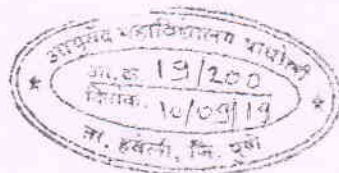 आयुर्वेद महाविद्यालय वाघोली
जा.क्र. 19/200
दिनांक. 10/09/19
ता. हवेली, जि. पुणे